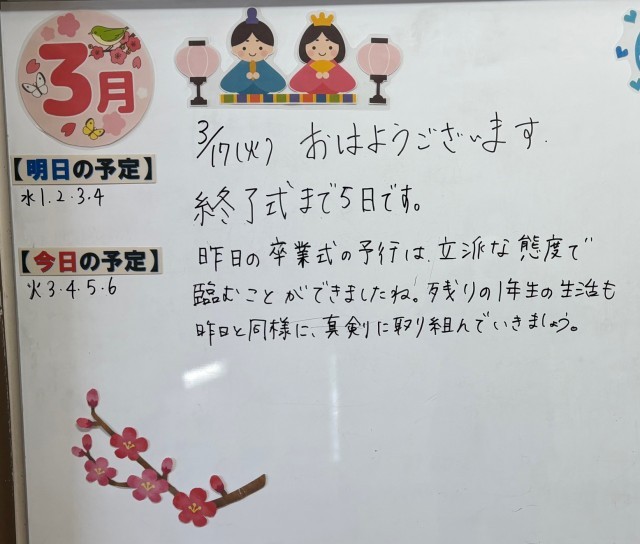 3月
【明日の予定】
水1.2.3.4
【今日の予定】
火3.4.5.6
3/17(火) おはようございます.
終了式まで5日です。
昨日の卒業式の予行は、立派な態度で
臨むことができましたね。残りの1年生の生活も
昨日と同様に、真剣に取り組んでいきましょう。